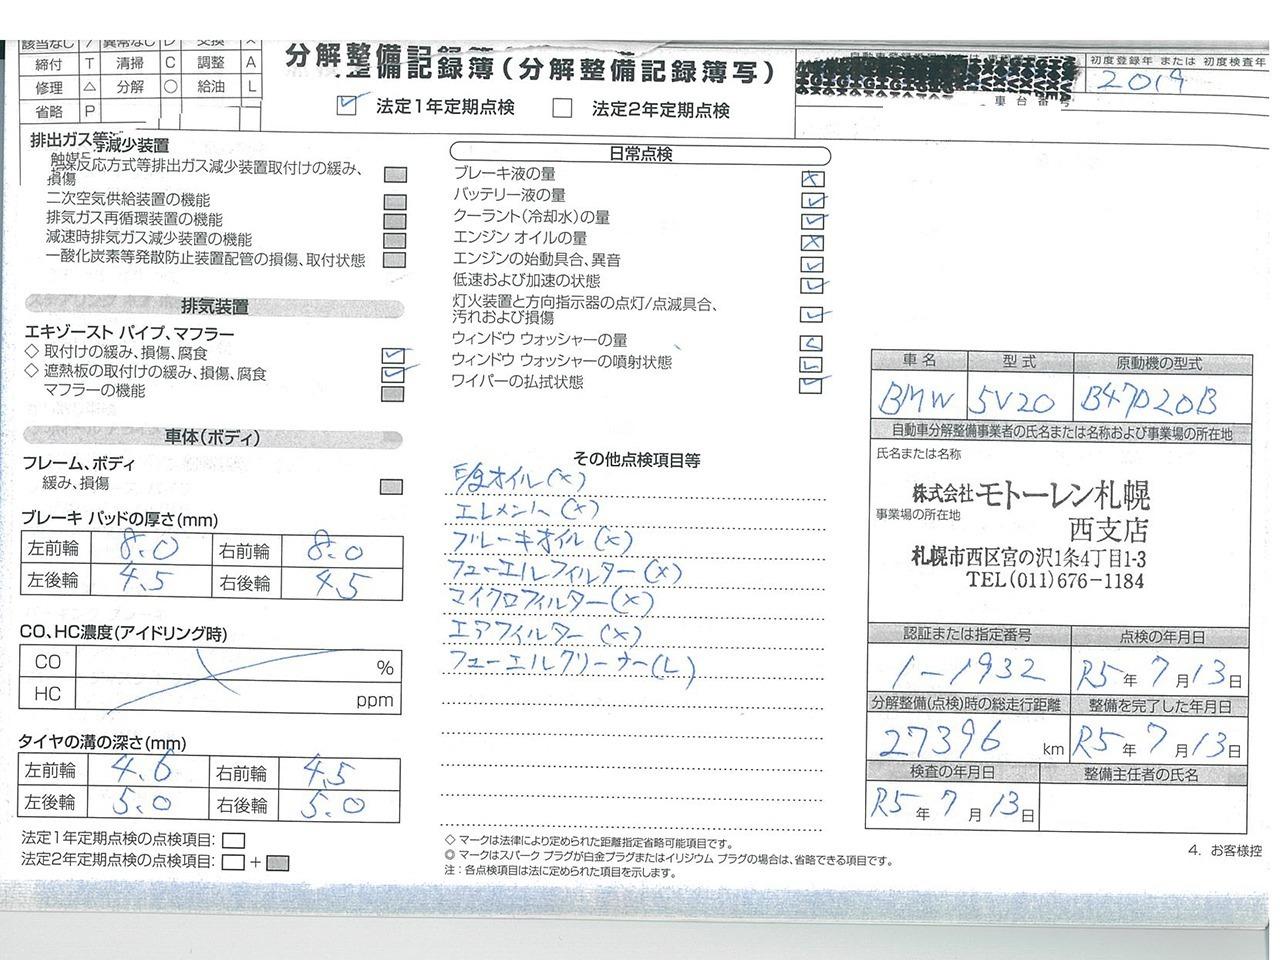 該当なし / 異常なし 交換 ×
締付 T 清掃 C 調整 A
修理 △ 分解 ○ 給油 L
省略 P
分解整備記録簿
整備記録簿(分解整備記録簿写)
☑ 法定1年定期点検 □ 法定2年定期点検
初度登録年 または 初度検査年
2019
車台番号
排出ガス等減少装置
触媒反応方式等排出ガス減少装置取付けの緩み、
損傷
二次空気供給装置の機能
排気ガス再循環装置の機能
減速時排気ガス減少装置の機能
一酸化炭素等発散防止装置配管の損傷、取付状態
排気装置
エキゾースト パイプ、マフラー
◇ 取付けの緩み、損傷、腐食 ✓
◇ 遮熱板の取付けの緩み、損傷、腐食 ✓
マフラーの機能
車体(ボディ)
フレーム、ボディ
緩み、損傷
ブレーキ パッドの厚さ(mm)
左前輪 8.0 右前輪 8.0
左後輪 4.5 右後輪 4.5
CO、HC濃度(アイドリング時)
CO %
HC ppm
タイヤの溝の深さ(mm)
左前輪 4.6 右前輪 4.5
左後輪 5.0 右後輪 5.0
法定1年定期点検の点検項目: □
法定2年定期点検の点検項目: □ +
日常点検
ブレーキ液の量 ×
バッテリー液の量 ✓
クーラント(冷却水)の量 ✓
エンジン オイルの量 ×
エンジンの始動具合、異音 ✓
低速および加速の状態 ✓
灯火装置と方向指示器の点灯/点滅具合、
汚れおよび損傷 ✓
ウィンドウ ウォッシャーの量 L
ウィンドウ ウォッシャーの噴射状態 ✓
ワイパーの払拭状態 ✓
その他点検項目等
E/gオイル(×)
エレメント(×)
ブレーキオイル(×)
フューエルフィルター(×)
マイクロフィルター(×)
エアフィルター(×)
フューエルクリーナー(L)
◇ マークは法律により定められた距離指定省略可能項目です。
◎ マークはスパーク プラグが白金プラグまたはイリジウム プラグの場合は、省略できる項目です。
注:各点検項目は法に定められた項目を示します。
車名 型式 原動機の型式
BMW 5V20 B47D20B
自動車分解整備事業者の氏名または名称および事業場の所在地
氏名または名称
株式会社モトーレン札幌
事業場の所在地
西支店
札幌市西区宮の沢1条4丁目1-3
TEL(011)676-1184
認証または指定番号 点検の年月日
1-1932 R5年7月13日
分解整備(点検)時の総走行距離 整備を完了した年月日
27396 km R5年7月13日
検査の年月日 整備主任者の氏名
R5年7月13日
4. お客様控